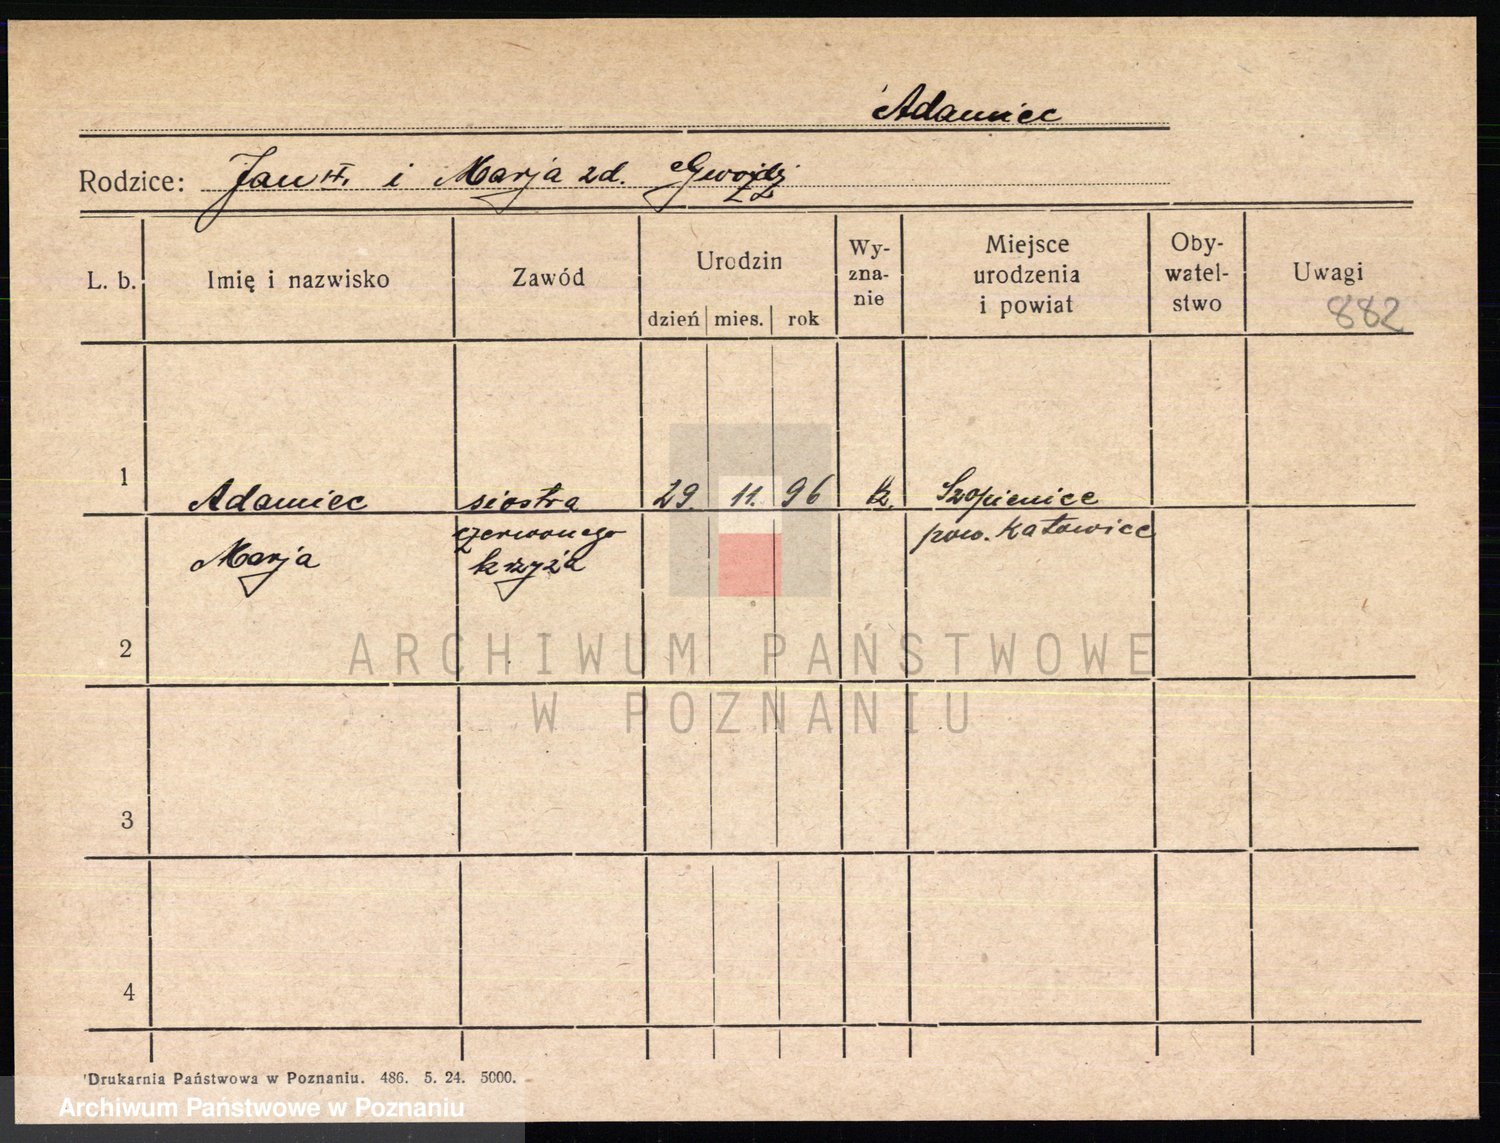 Adamiec
Rodzice: Jan i Marja zd.
L. b. Imię i nazwisko Zawód Urodzin dzień mies. rok Wy-zna-nie Miejsce urodzenia i powiat Oby-watel-stwo Uwagi
882
1 Adamiec siostra 29. 11. 96 k. Szopienice
Marja czerwonego pow. Katowice
krzyża
2
3
4
Drukarnia Państwowa w Poznaniu. 486. 5. 24. 5000.
ARCHIWUM PAŃSTWOWE
W POZNANIU
Archiwum Państwowe w Poznaniu